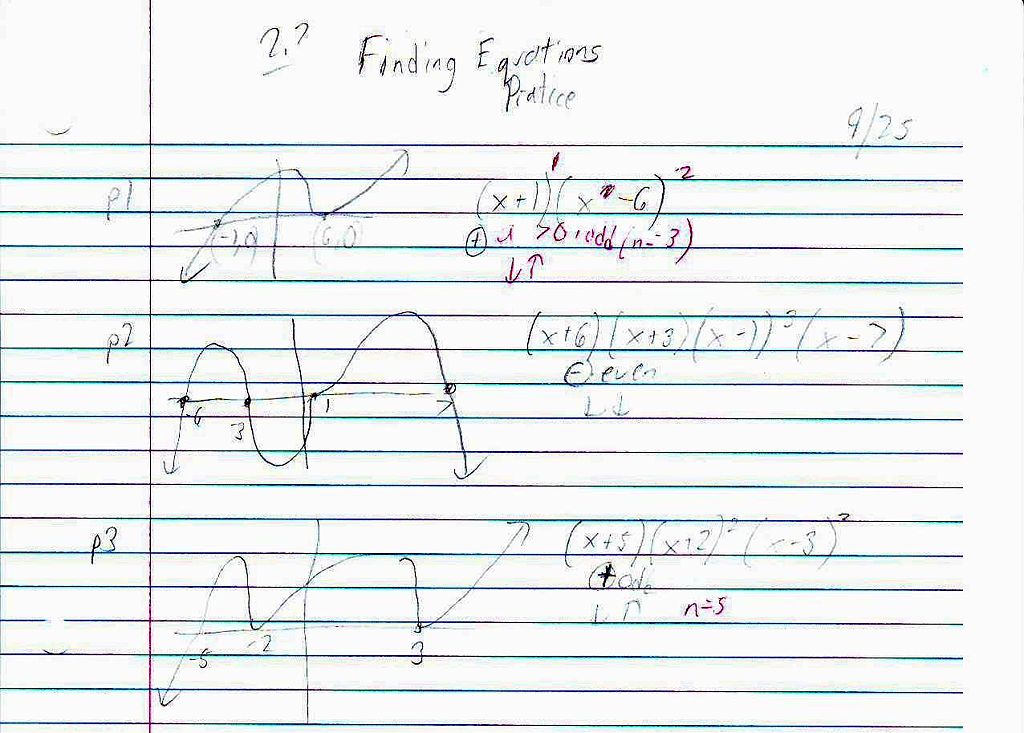 2.2 Finding Equations
Pratice
9/25
p1
(x+1)¹(x-6)²
(-1,0) (6,0)
⊕ a >0, odd (n=3)
↓↑
p2
(x+6)(x+3)(x-1)³(x-7)
-6 3 1 7
⊖ even
↓↓
p3
(x+5)(x+2)²(x-3)²
⊕ odd
↓↑ n=5
-5 -2 3